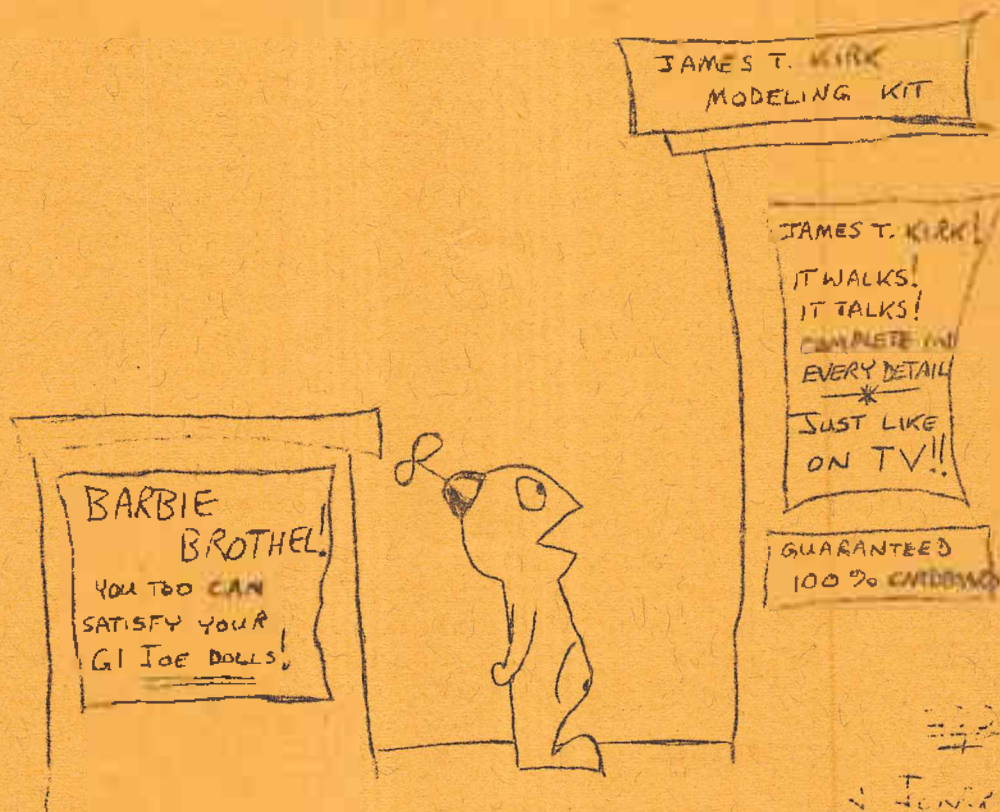 JAMES T. KIRK
MODELING KIT
JAMES T. KIRK!
IT WALKS!
IT TALKS!
COMPLETE IND
EVERY DETAIL
JUST LIKE
ON TV!!
GUARANTEED
100%
BARBIE
BROTHEL!
YOU TOO CAN
SATISFY YOUR
GI JOE DOLLS!